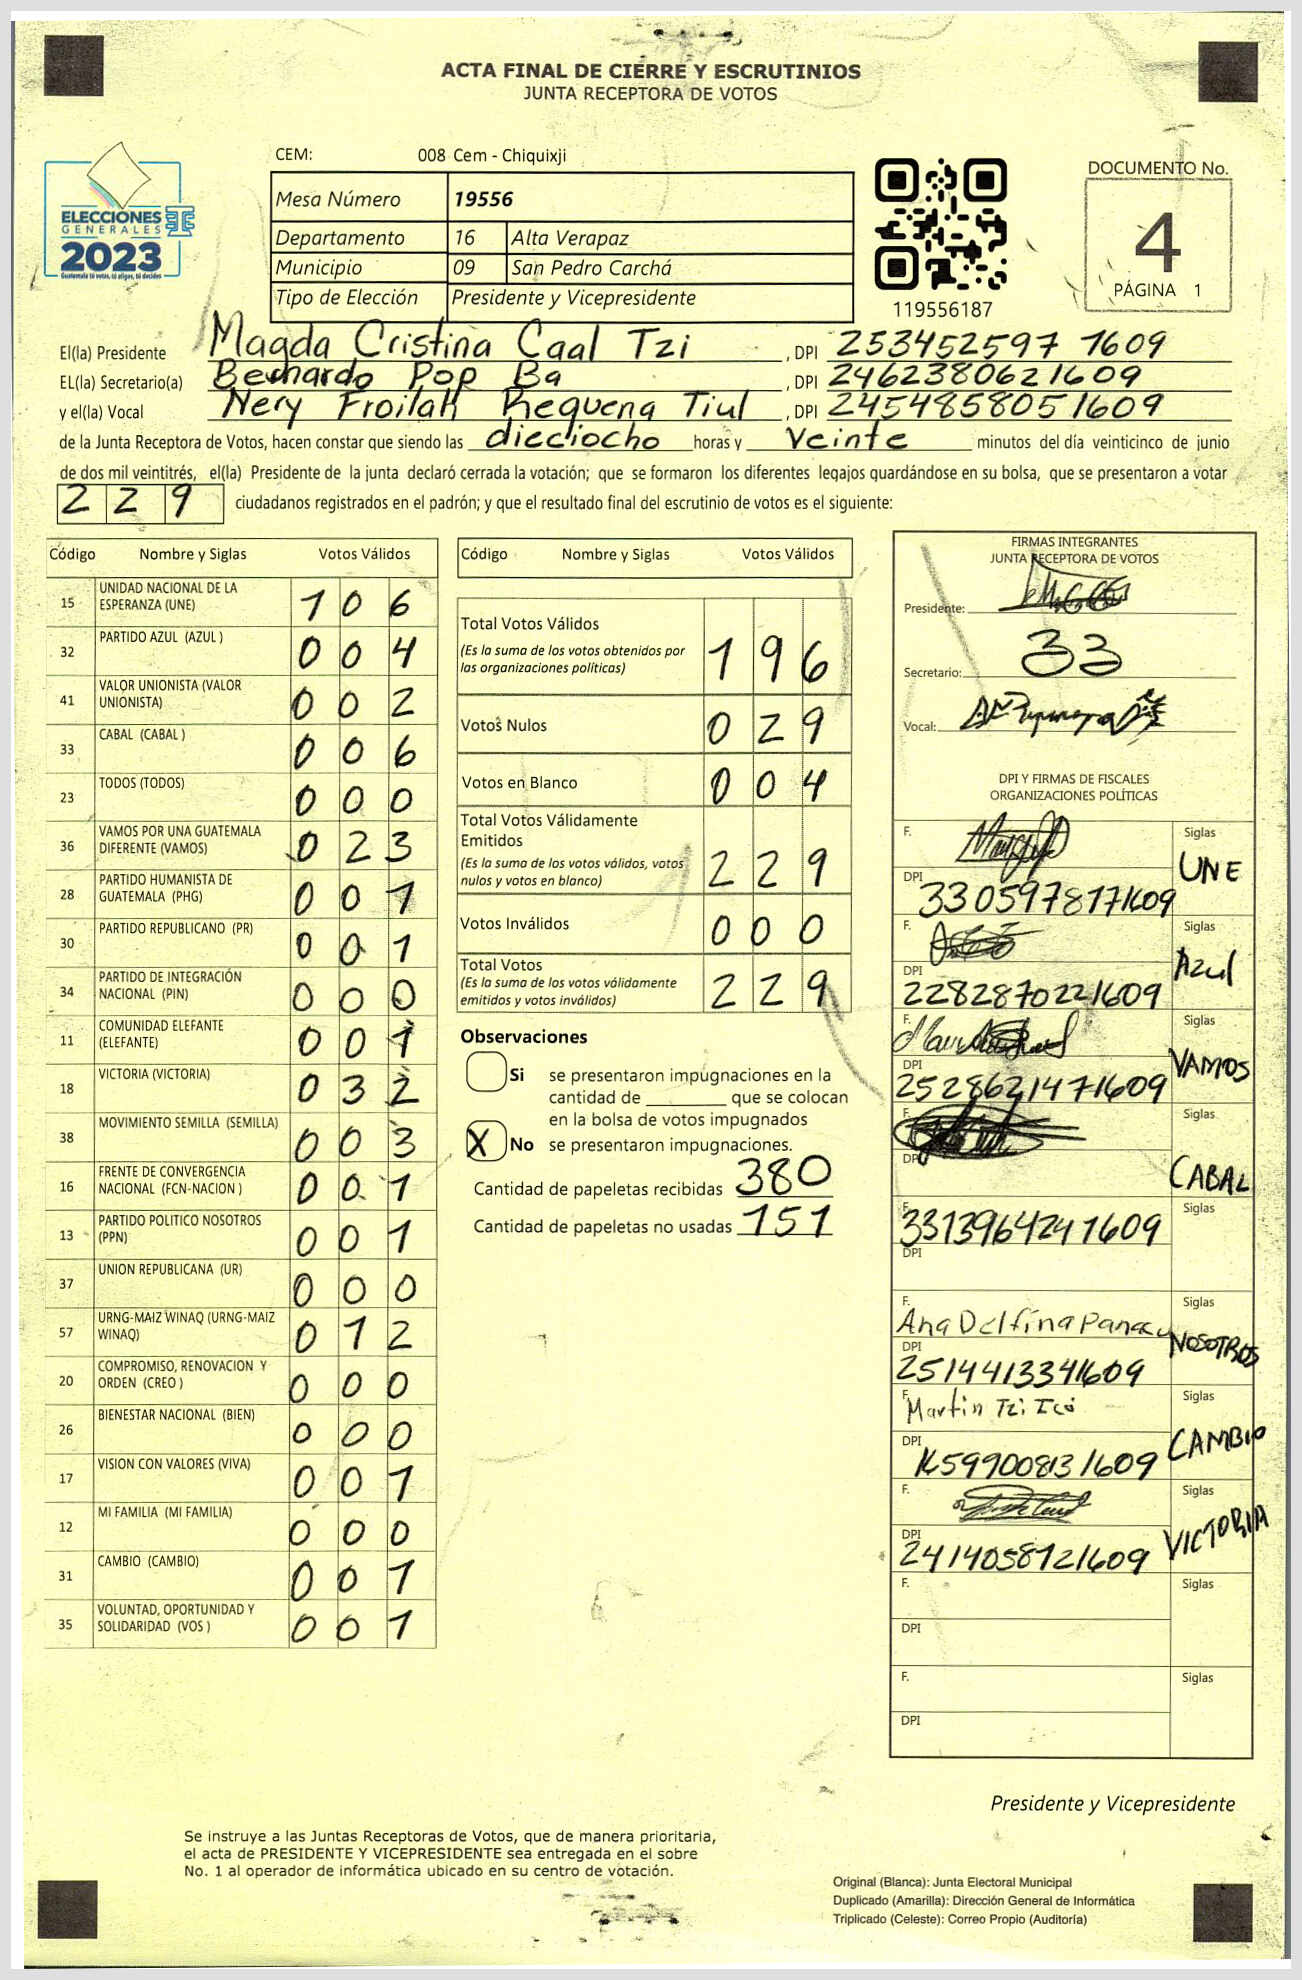 ACTA FINAL DE CIERRE Y ESCRUTINIOS
JUNTA RECEPTORA DE VOTOS
ELECCIONES
GENERALES
2023
Guatemala tú votas, tú eliges, tú decides
CEM: 008 Cem - Chiquixji
Mesa Número 19556
Departamento 16 Alta Verapaz
Municipio 09 San Pedro Carchá
Tipo de Elección Presidente y Vicepresidente
119556187
DOCUMENTO No.
4
PÁGINA 1
El(la) Presidente Magda Cristina Caal Tzi , DPI 253452597 1609
EL(la) Secretario(a) Bernardo Pop Ba , DPI 2462380621609
y el(la) Vocal Nery Froilan Requena Tiul , DPI 2454858051609
de la Junta Receptora de Votos, hacen constar que siendo las dieciocho horas y veinte minutos del día veinticinco de junio
de dos mil veintitrés, el(la) Presidente de la junta declaró cerrada la votación; que se formaron los diferentes legajos quardándose en su bolsa, que se presentaron a votar
229 ciudadanos registrados en el padrón; y que el resultado final del escrutinio de votos es el siguiente:
Código Nombre y Siglas Votos Válidos
15 UNIDAD NACIONAL DE LA ESPERANZA (UNE) 106
32 PARTIDO AZUL (AZUL ) 004
41 VALOR UNIONISTA (VALOR UNIONISTA) 002
33 CABAL (CABAL ) 006
23 TODOS (TODOS) 000
36 VAMOS POR UNA GUATEMALA DIFERENTE (VAMOS) 023
28 PARTIDO HUMANISTA DE GUATEMALA (PHG) 001
30 PARTIDO REPUBLICANO (PR) 001
34 PARTIDO DE INTEGRACIÓN NACIONAL (PIN) 000
11 COMUNIDAD ELEFANTE (ELEFANTE) 001
18 VICTORIA (VICTORIA) 032
38 MOVIMIENTO SEMILLA (SEMILLA) 003
16 FRENTE DE CONVERGENCIA NACIONAL (FCN-NACION ) 001
13 PARTIDO POLITICO NOSOTROS (PPN) 001
37 UNION REPUBLICANA (UR) 000
57 URNG-MAIZ WINAQ (URNG-MAIZ WINAQ) 012
20 COMPROMISO, RENOVACION Y ORDEN (CREO ) 000
26 BIENESTAR NACIONAL (BIEN) 000
17 VISION CON VALORES (VIVA) 001
12 MI FAMILIA (MI FAMILIA) 000
31 CAMBIO (CAMBIO) 001
35 VOLUNTAD, OPORTUNIDAD Y SOLIDARIDAD (VOS ) 001
Código Nombre y Siglas Votos Válidos
Total Votos Válidos
(Es la suma de los votos obtenidos por
las organizaciones políticas) 196
Votos Nulos 029
Votos en Blanco 004
Total Votos Válidamente
Emitidos
(Es la suma de los votos válidos, votos
nulos y votos en blanco) 229
Votos Inválidos 000
Total Votos
(Es la suma de los votos válidamente
emitidos y votos inválidos) 229
Observaciones
Si se presentaron impugnaciones en la
cantidad de ________ que se colocan
en la bolsa de votos impugnados
X No se presentaron impugnaciones.
Cantidad de papeletas recibidas 380
Cantidad de papeletas no usadas 151
FIRMAS INTEGRANTES
JUNTA RECEPTORA DE VOTOS
Presidente:
Secretario:
Vocal:
DPI Y FIRMAS DE FISCALES
ORGANIZACIONES POLÍTICAS
F. Siglas
UNE
DPI 3305978171609
F. Siglas
Azul
DPI 2282870221609
F. Siglas
VAMOS
DPI 2528621471609
F. Siglas
DPI CABAL
F. Siglas
3313964241609
DPI
F. Siglas
Ana Delfina
NOSOTROS
DPI 2514413341609
F. Siglas
Martin Tzi Icó
CAMBIO
DPI 1659900831609
F. Siglas
VICTORIA
DPI 2414058121609
F. Siglas
DPI
F. Siglas
DPI
Presidente y Vicepresidente
Se instruye a las Juntas Receptoras de Votos, que de manera prioritaria,
el acta de PRESIDENTE Y VICEPRESIDENTE sea entregada en el sobre
No. 1 al operador de informática ubicado en su centro de votación.
Original (Blanca): Junta Electoral Municipal
Duplicado (Amarilla): Dirección General de Informática
Triplicado (Celeste): Correo Propio (Auditoría)